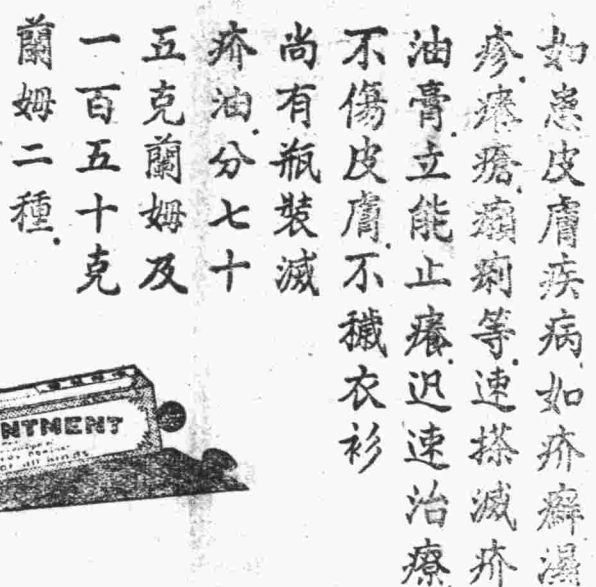 如患皮膚疾病.如疥癬濕
疹.瘡.癩痢等.速搽滅疥
油膏.立能止癢.迅速治療
不傷皮膚.不穢衣衫
尚有瓶裝滅
疥油.分七十
五克蘭姆及
一百五十克
蘭姆二種.
NTMENT
of all kinds